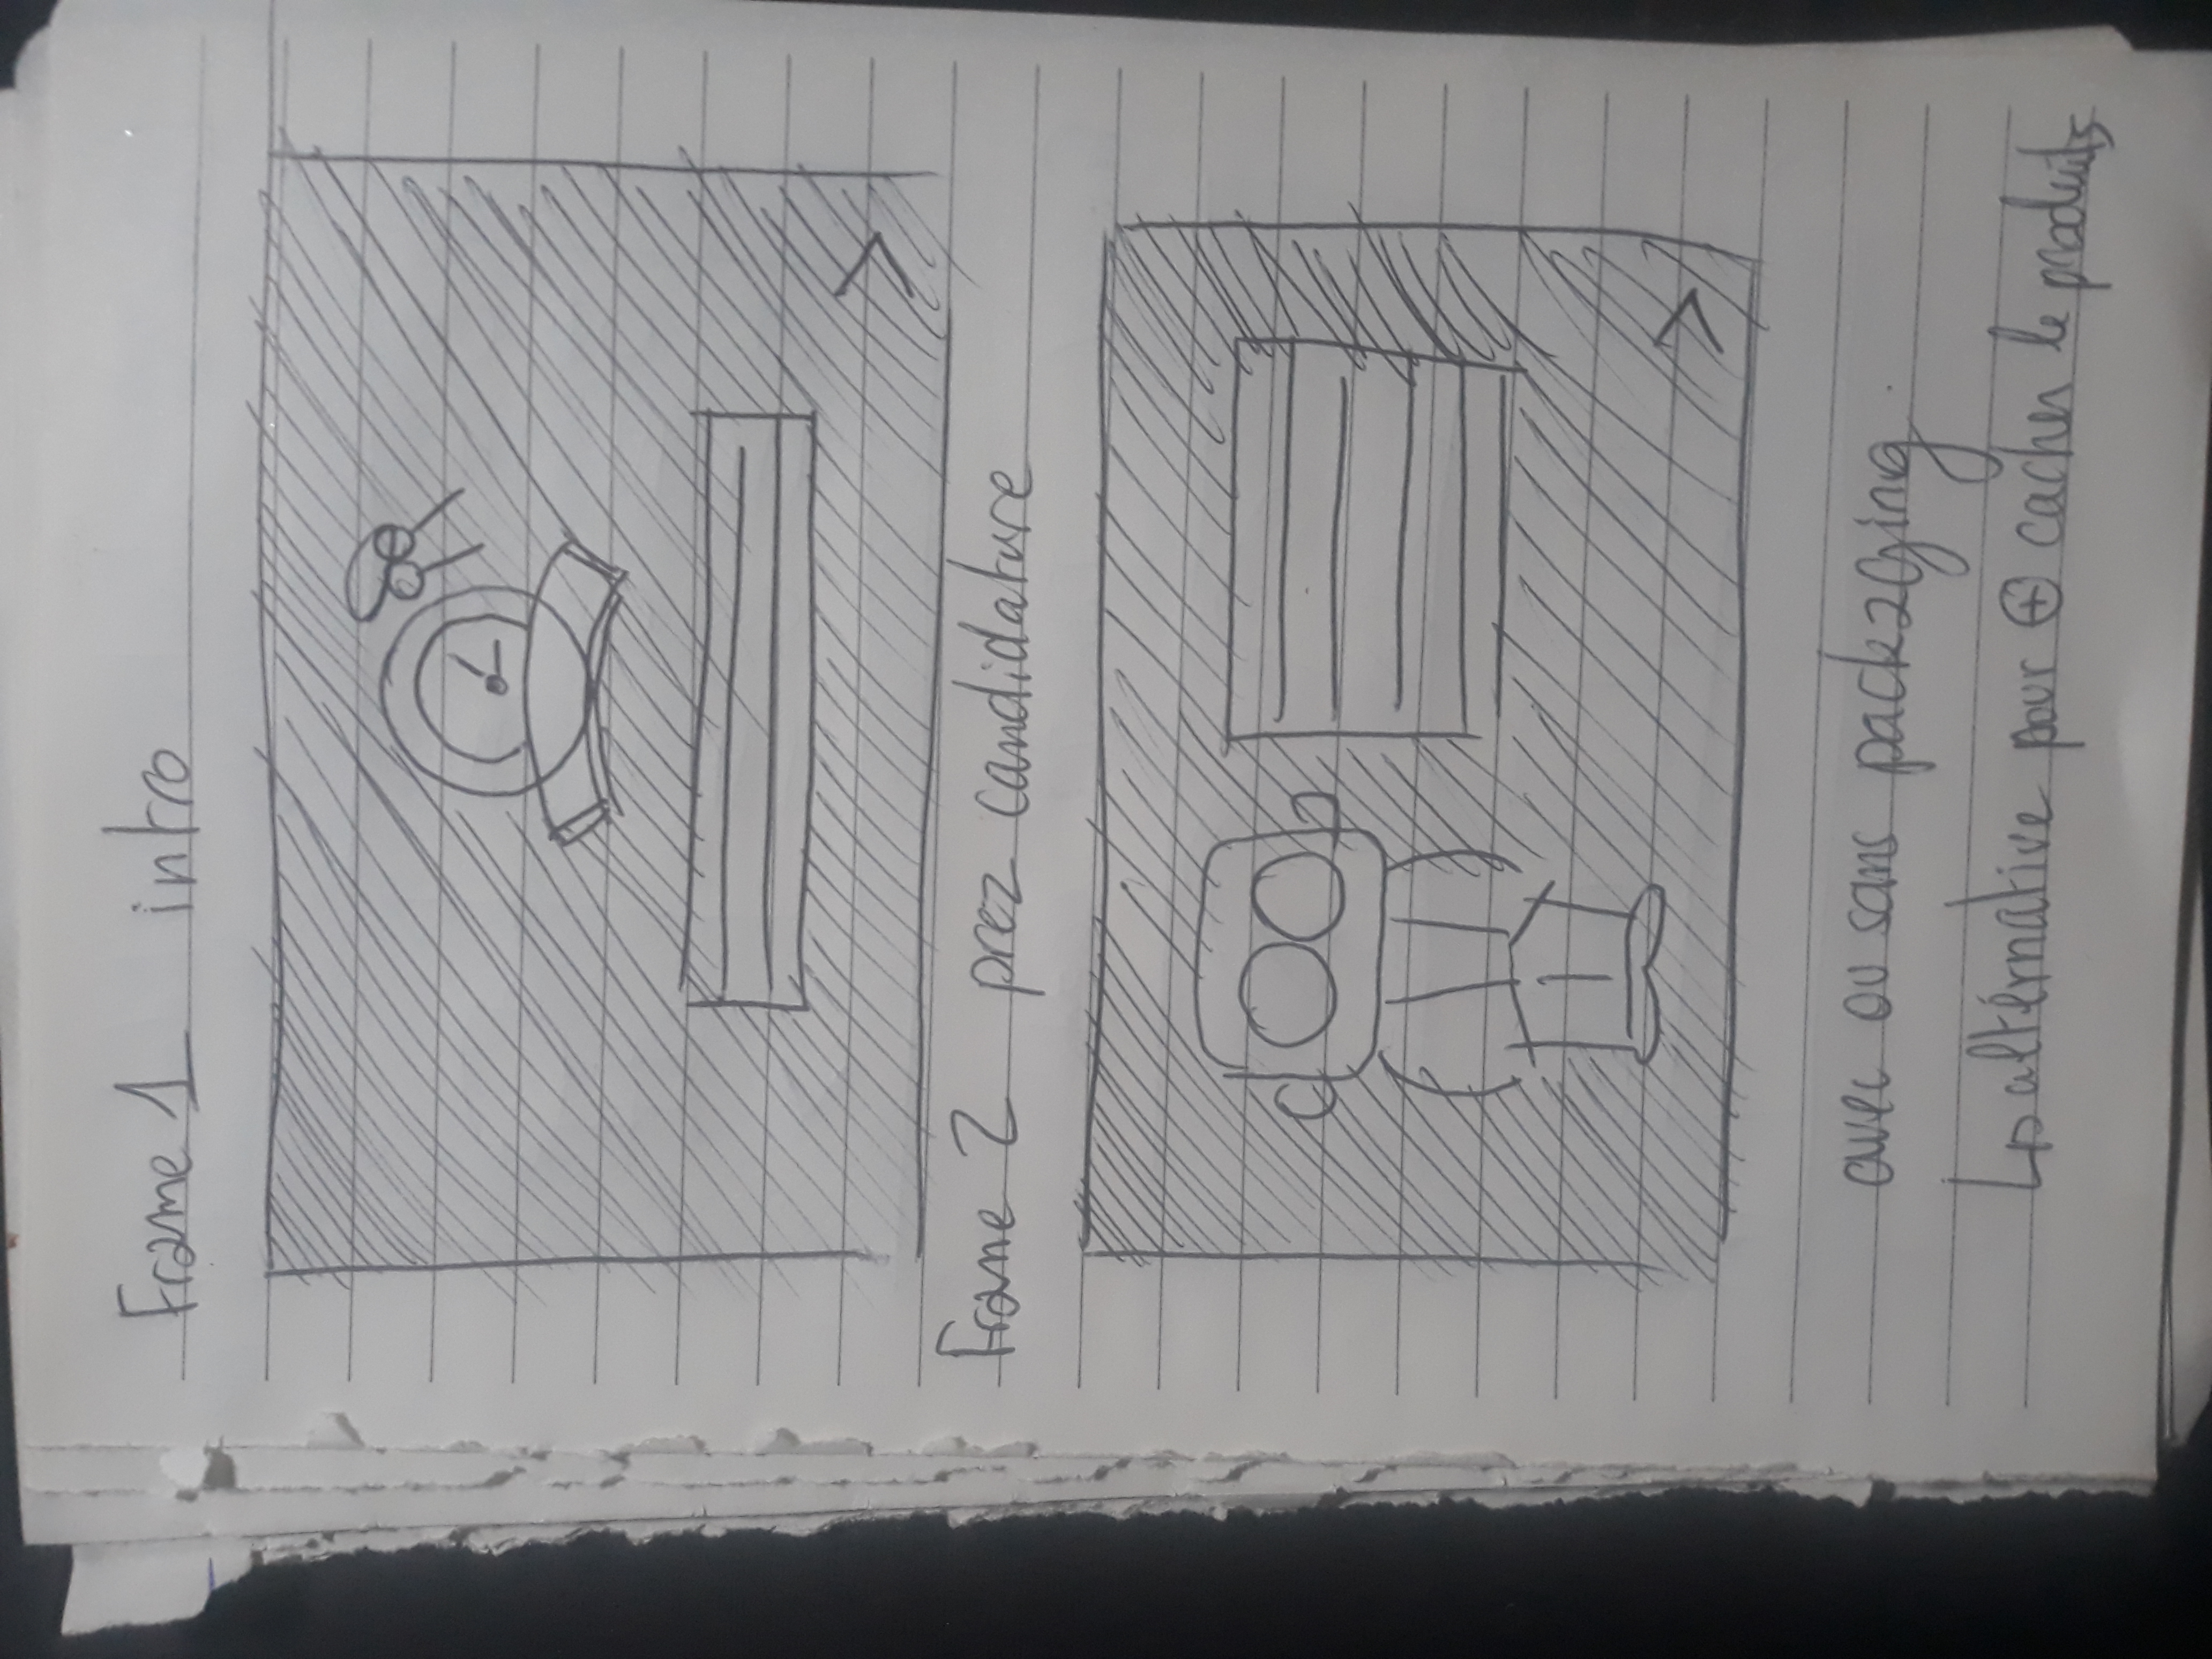 Frame 1 intro
Frame 2 prez candidature
avec ou sans packaging
↳ alternative pour ⊕ cacher le produits